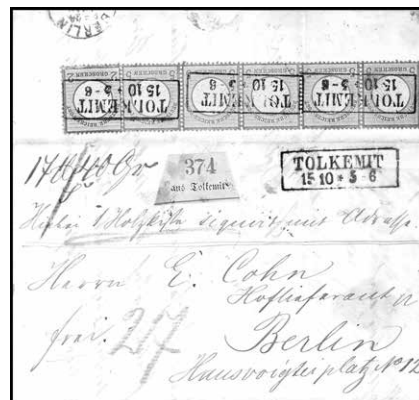 BERLIN
TOLKEMIT
15 10 5-6
TOLKEMIT
15 10 5-6
TOLKEMIT
15 10 5-6
374
aus Tolkemit
TOLKEMIT
15 10 * 5-6
Hiebei 1 Holzkiste signirt mit Adresse.
Herrn E. Cohn
Hoflieferant
frei. 27 Berlin
Hausvoigteiplatz No 12